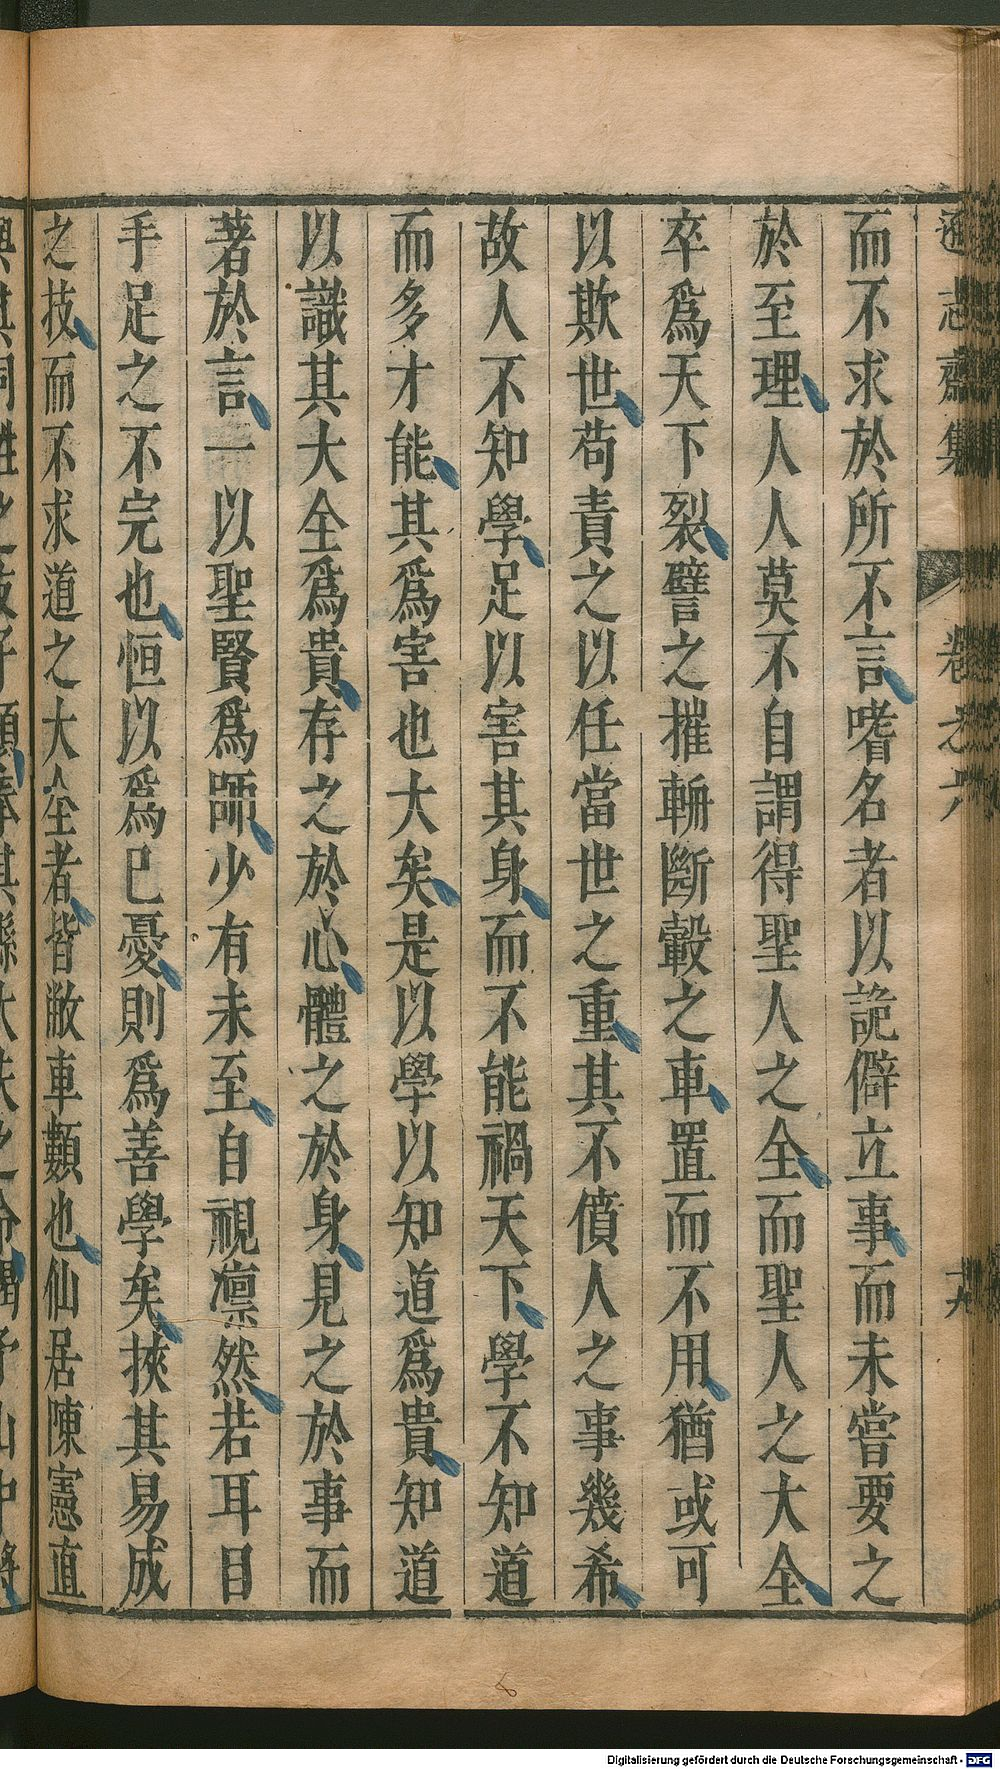 遜志齋集
卷之六
十九
而不求於所不言嗜名者以詭僻立事而未嘗要之
於至理人人莫不自謂得聖人之全而聖人之大全
卒爲天下裂譬之摧輈斷轂之車置而不用猶或可
以欺世苟責之以任當世之重其不僨人之事幾希
故人不知學足以害其身而不能禍天下學不知道
而多才能其爲害也大矣是以學以知道爲貴知道
以識其大全爲貴存之於心體之於身見之於事而
著於言一以聖賢爲師少有未至自視凛然若耳目
手足之不完也恒以爲已憂則爲善學矣挾其易成
之技而不求道之大全者皆敝車類也仙居陳憲直
Digitalisierung gefördert durch die Deutsche Forschungsgemeinschaft - DFG